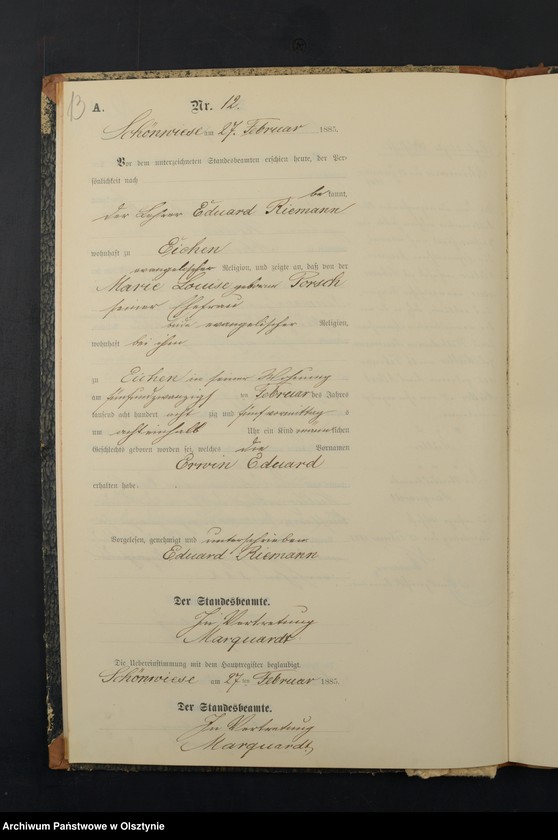 13
A. Nr. 12.
Schönwiese am 27. Februar 1885.
Vor dem unterzeichneten Standesbeamten erschien heute, der Per-
sönlichkeit nach
be kannt,
der Lehrer Eduard Riemann
wohnhaft zu Eichen
evangelischer Religion, und zeigte an, daß von der
Marie Louise geborene Porsch
seiner Ehefrau
evangelischer Religion,
wohnhaft bei ihm
zu Eichen in seiner Wohnung
am fünfundzwanzigs ten Februar des Jahres
tausend acht hundert acht zig und fünf vormittag s
um achteinhalb Uhr ein Kind männ lichen
Geschlechts geboren worden sei, welches die Vornamen
Erwin Eduard
erhalten habe.
Vorgelesen, genehmigt und unterschrieben
Eduard Riemann
Der Standesbeamte.
In Vertretung
Marquardt
Die Uebereinstimmung mit dem Hauptregister beglaubigt.
Schönwiese am 27 ten Februar 1885.
Der Standesbeamte.
In Vertretung
Marquardt
Archiwum Państwowe w Olsztynie